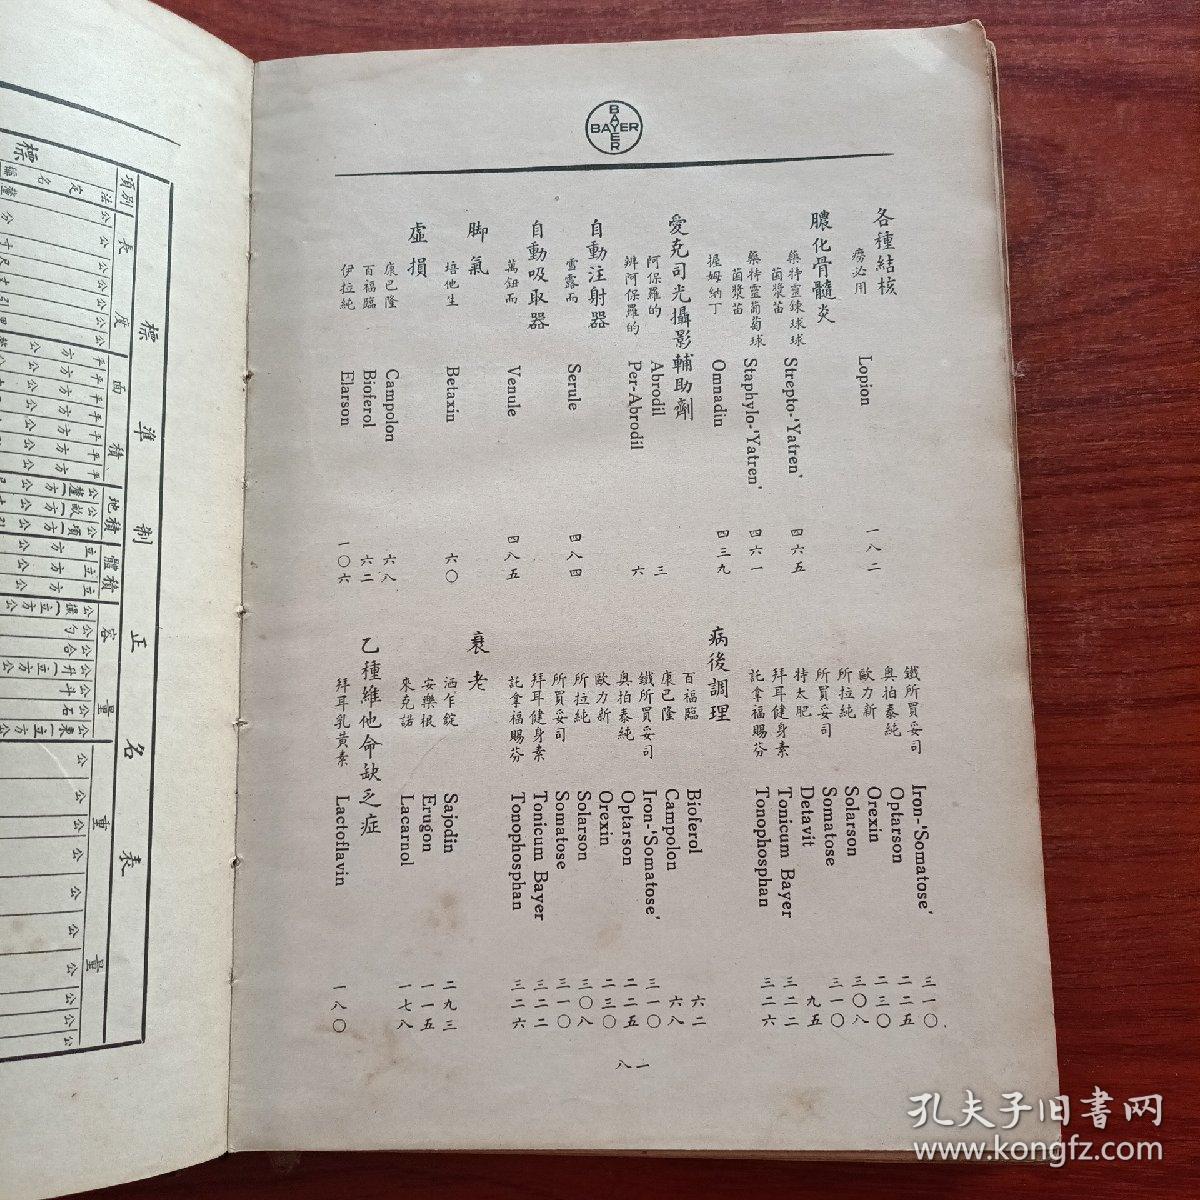 BAYER
BAYER
各種結核
癆必用 Lopion 一八二
膿化骨髓炎
藥特靈鍊球球菌漿苗 Strepto-'Yatren' 四六五
藥特靈葡萄球菌漿苗 Staphylo-'Yatren' 四六一
握姆納丁 Omnadin 四三九
愛克司光攝影輔助劑
阿保羅的 Abrodil 三
辨阿保羅的 Per-Abrodil 六
自動注射器
雪露兩 Serule 四八四
自動吸取器
萬鈕兩 Venule 四八五
脚氣
培他生 Betaxin 六〇
虛損
康已隆 Campolon 六八
百福臨 Bioferol 六二
伊拉純 Elarson 一〇六
鐵所買妥司 Iron-'Somatose' 三一〇
奥拍泰純 Optarson 二二五
歐力新 Orexin 二三〇
所拉純 Solarson 三〇八
所買妥司 Somatose 三一〇
特太肥 Detavit 九五
拜耳健身素 Tonicum Bayer 三二二
託拿福賜芬 Tonophosphan 三二六
病後調理
百福臨 Bioferol 六二
康已隆 Campolon 六八
鐵所買妥司 Iron-'Somatose' 三一〇
奥拍泰純 Optarson 二二五
歐力新 Orexin 二三〇
所拉純 Solarson 三〇八
所買妥司 Somatose 三一〇
拜耳健身素 Tonicum Bayer 三二二
託拿福賜芬 Tonophosphan 三二六
衰老
洒乍錠 Sajodin 二九三
安樂根 Erugon 一一五
來克諾 Lacarnol 一七八
乙種維他命缺乏症
拜耳乳黃素 Lactoflavin 一八〇
八一
標準制正名表
項別
長度
面積
地積
體積
容量
重量
標
法定名
孔夫子旧书网
www.kongfz.com